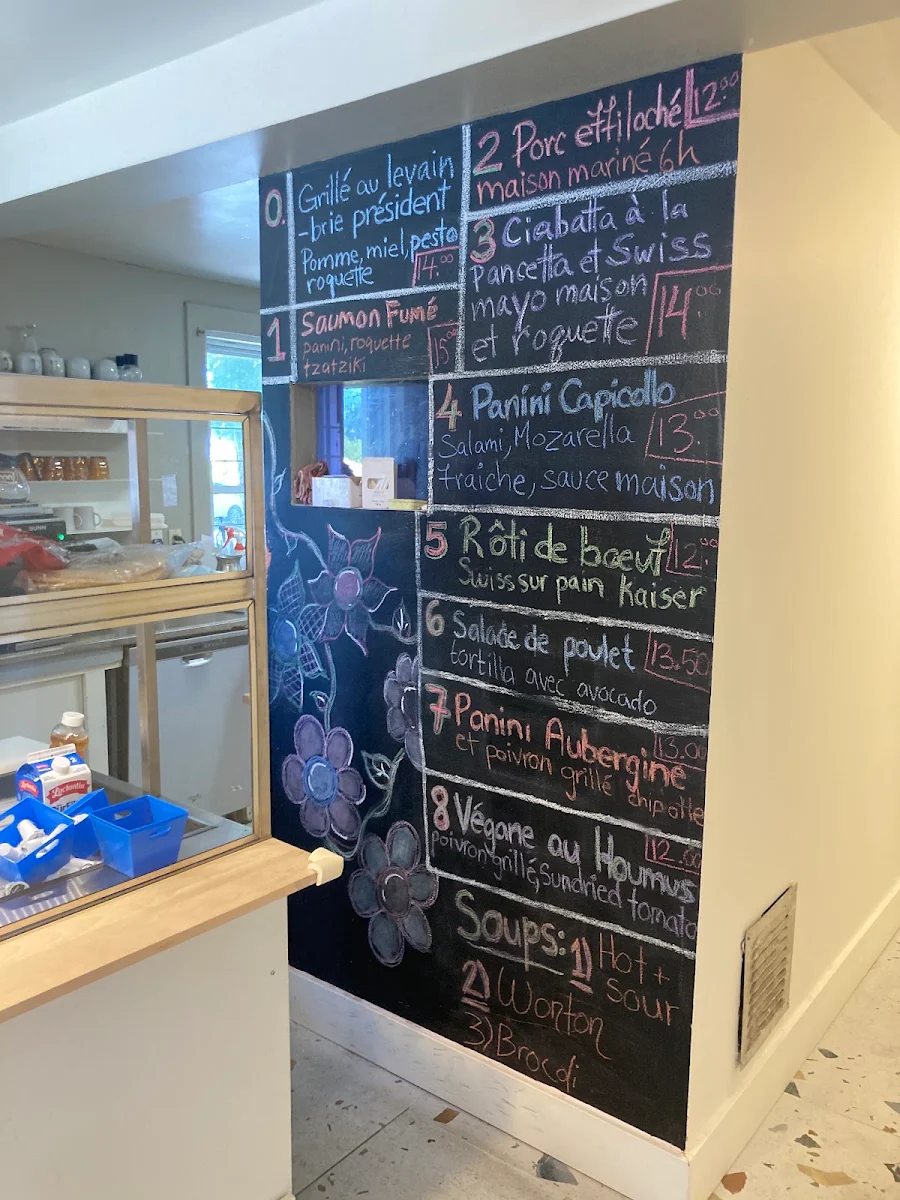 0.
Grillé au levain
-brie président
Pomme, miel, pesto
roquette
14.00
1
Saumon Fumé
panini, roquette
tzatziki
15.00
2 Porc effiloché 12.00
maison mariné 6h
3 Ciabatta à la
Pancetta et Swiss
mayo maison
et roquette
14.00
4 Panini Capicollo
Salami, Mozarella
13.00
fraiche, sauce maison
5 Rôti de bœuf 12.00
Swiss sur pain Kaiser
6 Salade de poulet 13.50
tortilla avec avocado
7 Panini Aubergine 13.00
et poivron grillé chipotle
8 Végane au Houmus 12.00
poivron grillé, Sundried tomato
Soups: 1) Hot +
sour
2) Wonton
3) Brocoli
Lactantia
BUNN